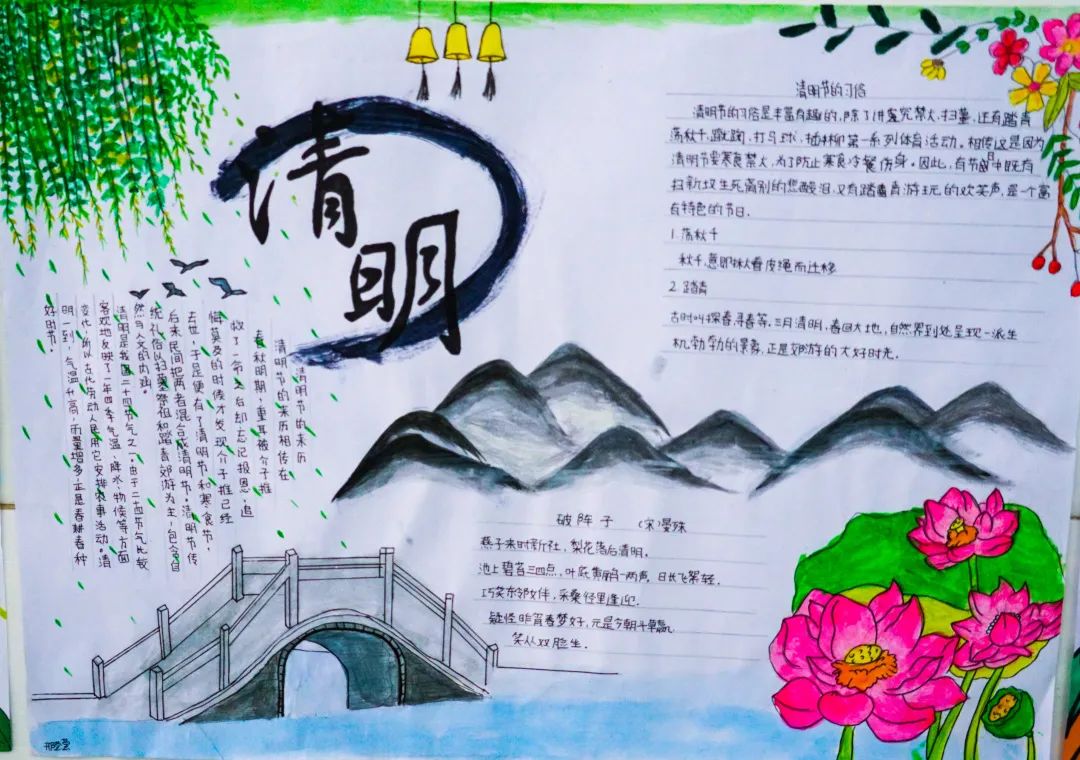 清明
清明节的来历
清明节的来历相传在
春秋明期，重耳被介子推
救了一命之后却忘记报恩，追
悔莫及的时候才发现介子推已经
去世，于是便有了清明节和寒食节，
后来民间把两者混合成清明节。清明节传
统礼俗以扫墓祭祖和踏青郊游为主，包含自
然与人文的内涵。
清明是我国二十四节气之一，由于二十四节气比较
客观地反映了一年四季气温、降水、物候等方面
变化，所以古代劳动人民用它安排农事活动。清
明一到，气温升高，雨量增多，正是春耕春种
好时节。
清明节的习俗
清明节的习俗是丰富有趣的，除了讲究禁火、扫墓，还有踏青
荡秋千、蹴鞠、打马球、插柳第一系列体育活动。相传这是因为
清明节要寒食禁火，为了防止寒食冷餐伤身。因此，有节日中既有
扫新坟生死离别的悲酸泪，又有踏青游玩的欢笑声，是一个富
有特色的节日.
1.荡秋千
秋千，意即揪着皮绳而迁移
2.踏青
古时叫探春、寻春等，三月清明，春回大地，自然界到处呈现一派生
机勃勃的景象，正是郊游的大好时光.
破阵子 （宋）晏殊
燕子来时新社，梨花落后清明。
池上碧苔三四点，叶底黄鹂一两声，日长飞絮轻.
巧笑东邻女伴，采桑径里逢迎.
疑怪昨宵春梦好，元是今朝斗草赢.
笑从双脸生.